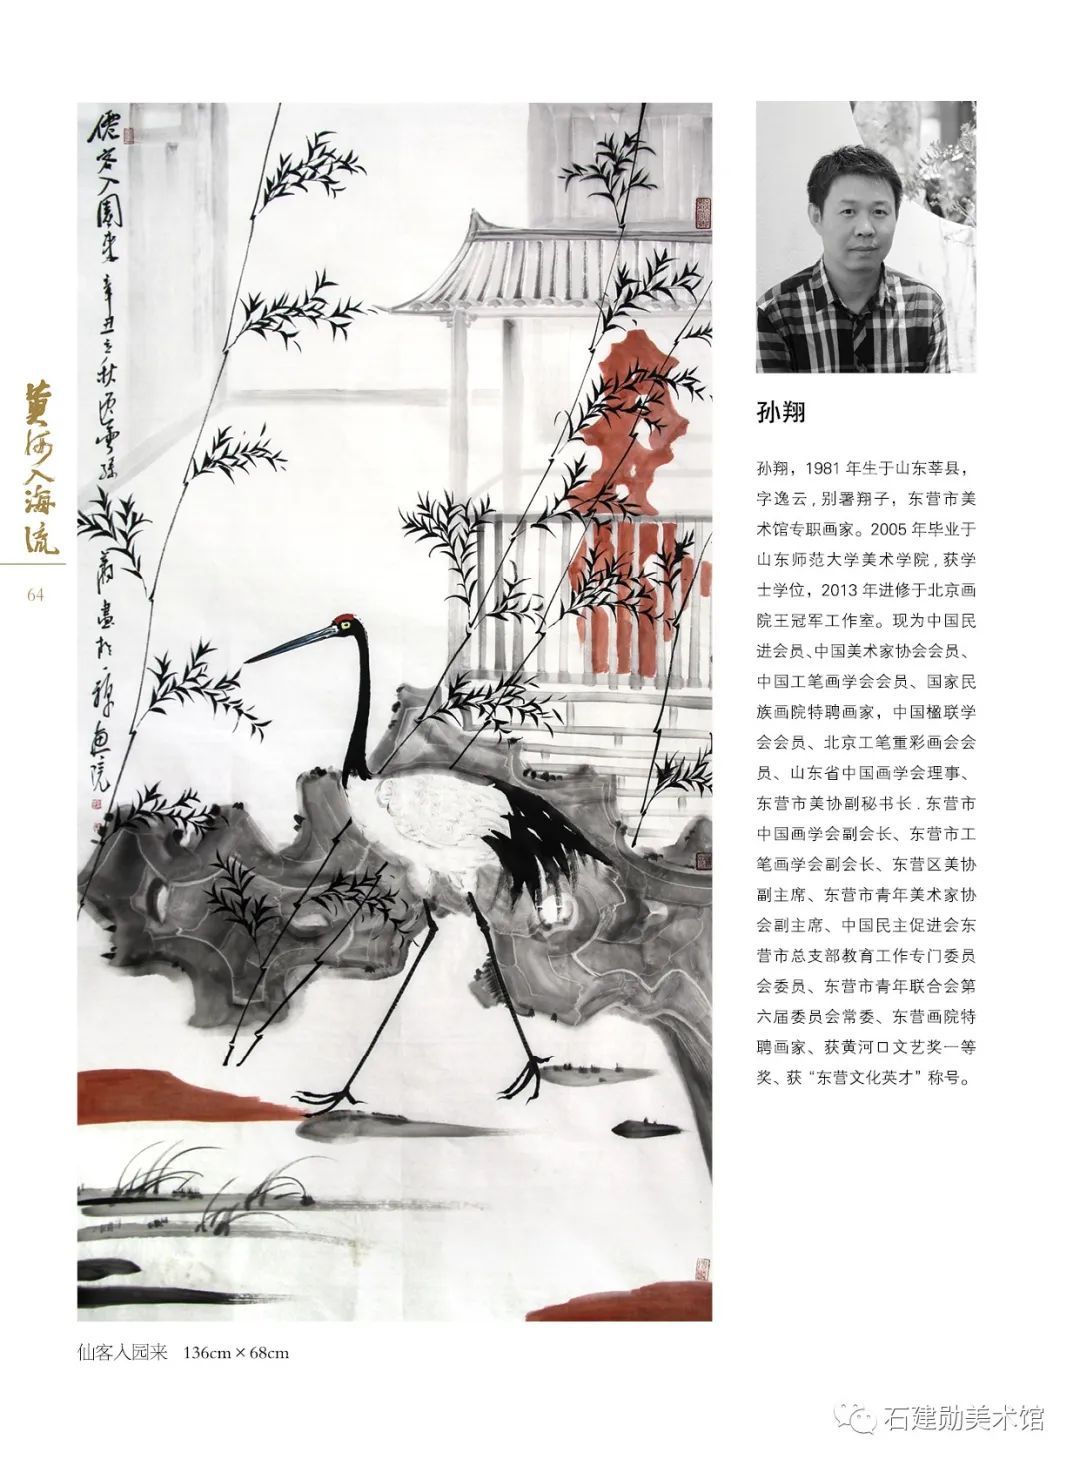 僊客入園来 辛丑立秋
黄河入海流
64
仙客入园来 136cm×68cm
孙翔
孙翔，1981年生于山东莘县，
字逸云，别署翔子，东营市美
术馆专职画家。2005年毕业于
山东师范大学美术学院，获学
士学位，2013年进修于北京画
院王冠军工作室。现为中国民
进会员、中国美术家协会会员、
中国工笔画学会会员、国家民
族画院特聘画家，中国楹联学
会会员、北京工笔重彩画会会
员、山东省中国画学会理事、
东营市美协副秘书长.东营市
中国画学会副会长、东营市工
笔画学会副会长、东营区美协
副主席、东营市青年美术家协
会副主席、中国民主促进会东
营市总支部教育工作专门委员
会委员、东营市青年联合会第
六届委员会常委、东营画院特
聘画家、获黄河口文艺奖一等
奖、获“东营文化英才”称号。
石建勋美术馆